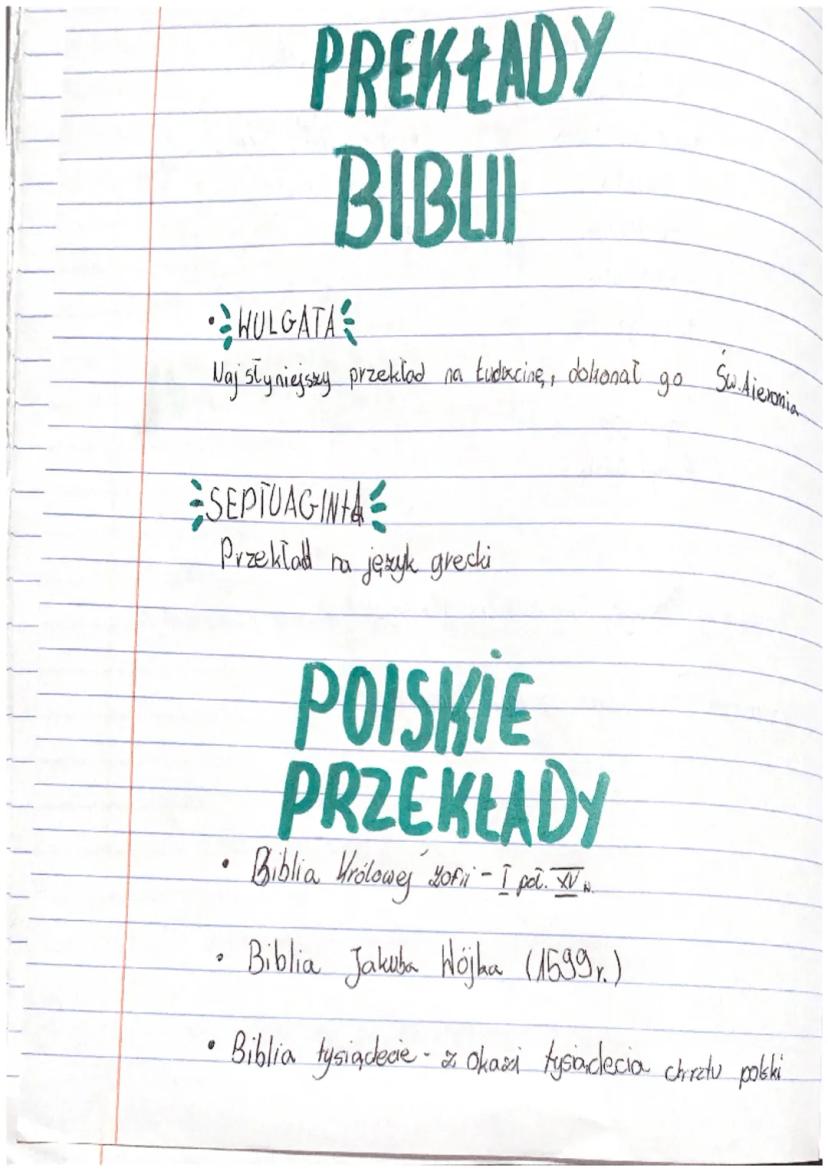 PREKŁADY
BIBLII
• WULGATA
Najsłyniejszy przekład na łudacinę, dokonał go Św. Hieronia
SEPTUAGINTA
Przekład na język grecki
POLSKIE
PRZEKŁADY
• Biblia Królowej Zofii - I poł. XV w.
• Biblia Jakuba Wójka (1599 r.)
• Biblia tysiąclecie - z okazi tysiąclecia chrztu polski